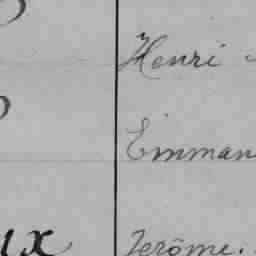 Henri
Emman
ux Jerôme.